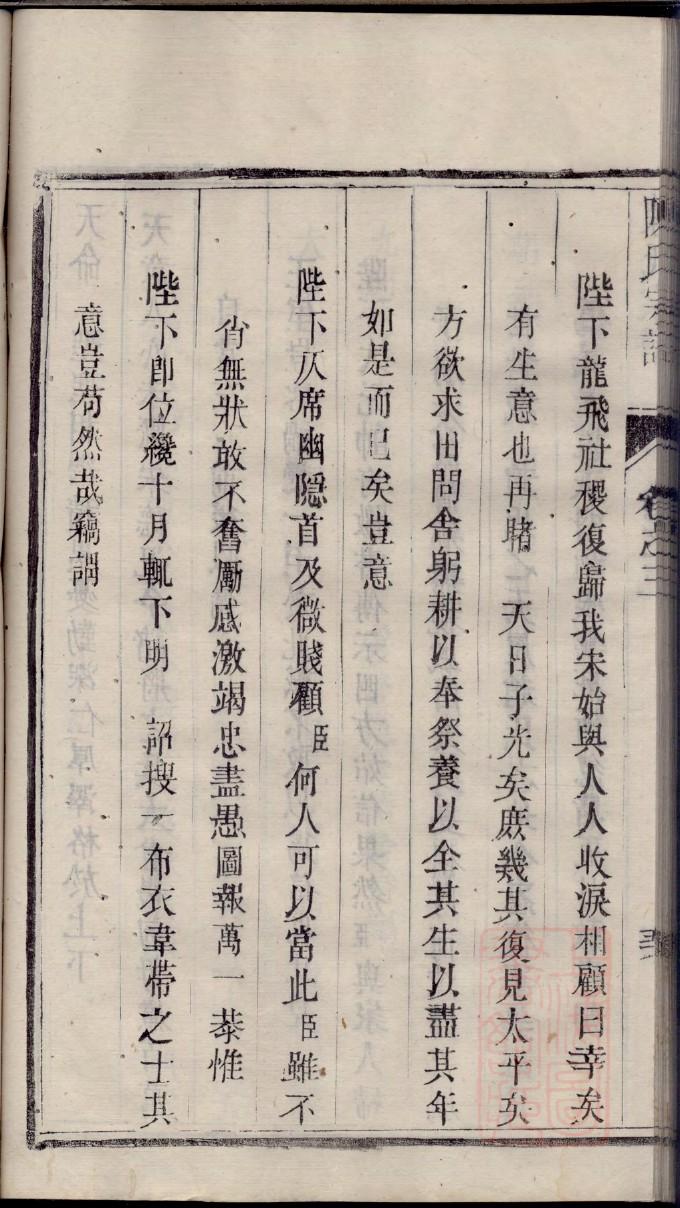 陳氏宗譜
卷之三
陛下龍飛社稷復歸我宋始與人人收淚相顧曰幸矣
有生意也再睹 天日子光矣庶幾其復見太平矣
方欲求田問舍躬耕以奉祭養以全其生以盡其年
如是而已矣豈意
陛下仄席幽隱首及微賤顧臣何人可以當此臣雖不
肖無狀敢不奮厲感激竭忠盡愚圖報萬一 恭惟
陛下即位纔十月輒下明 詔搜一布衣韋帶之士其
意豈苟然哉竊謂